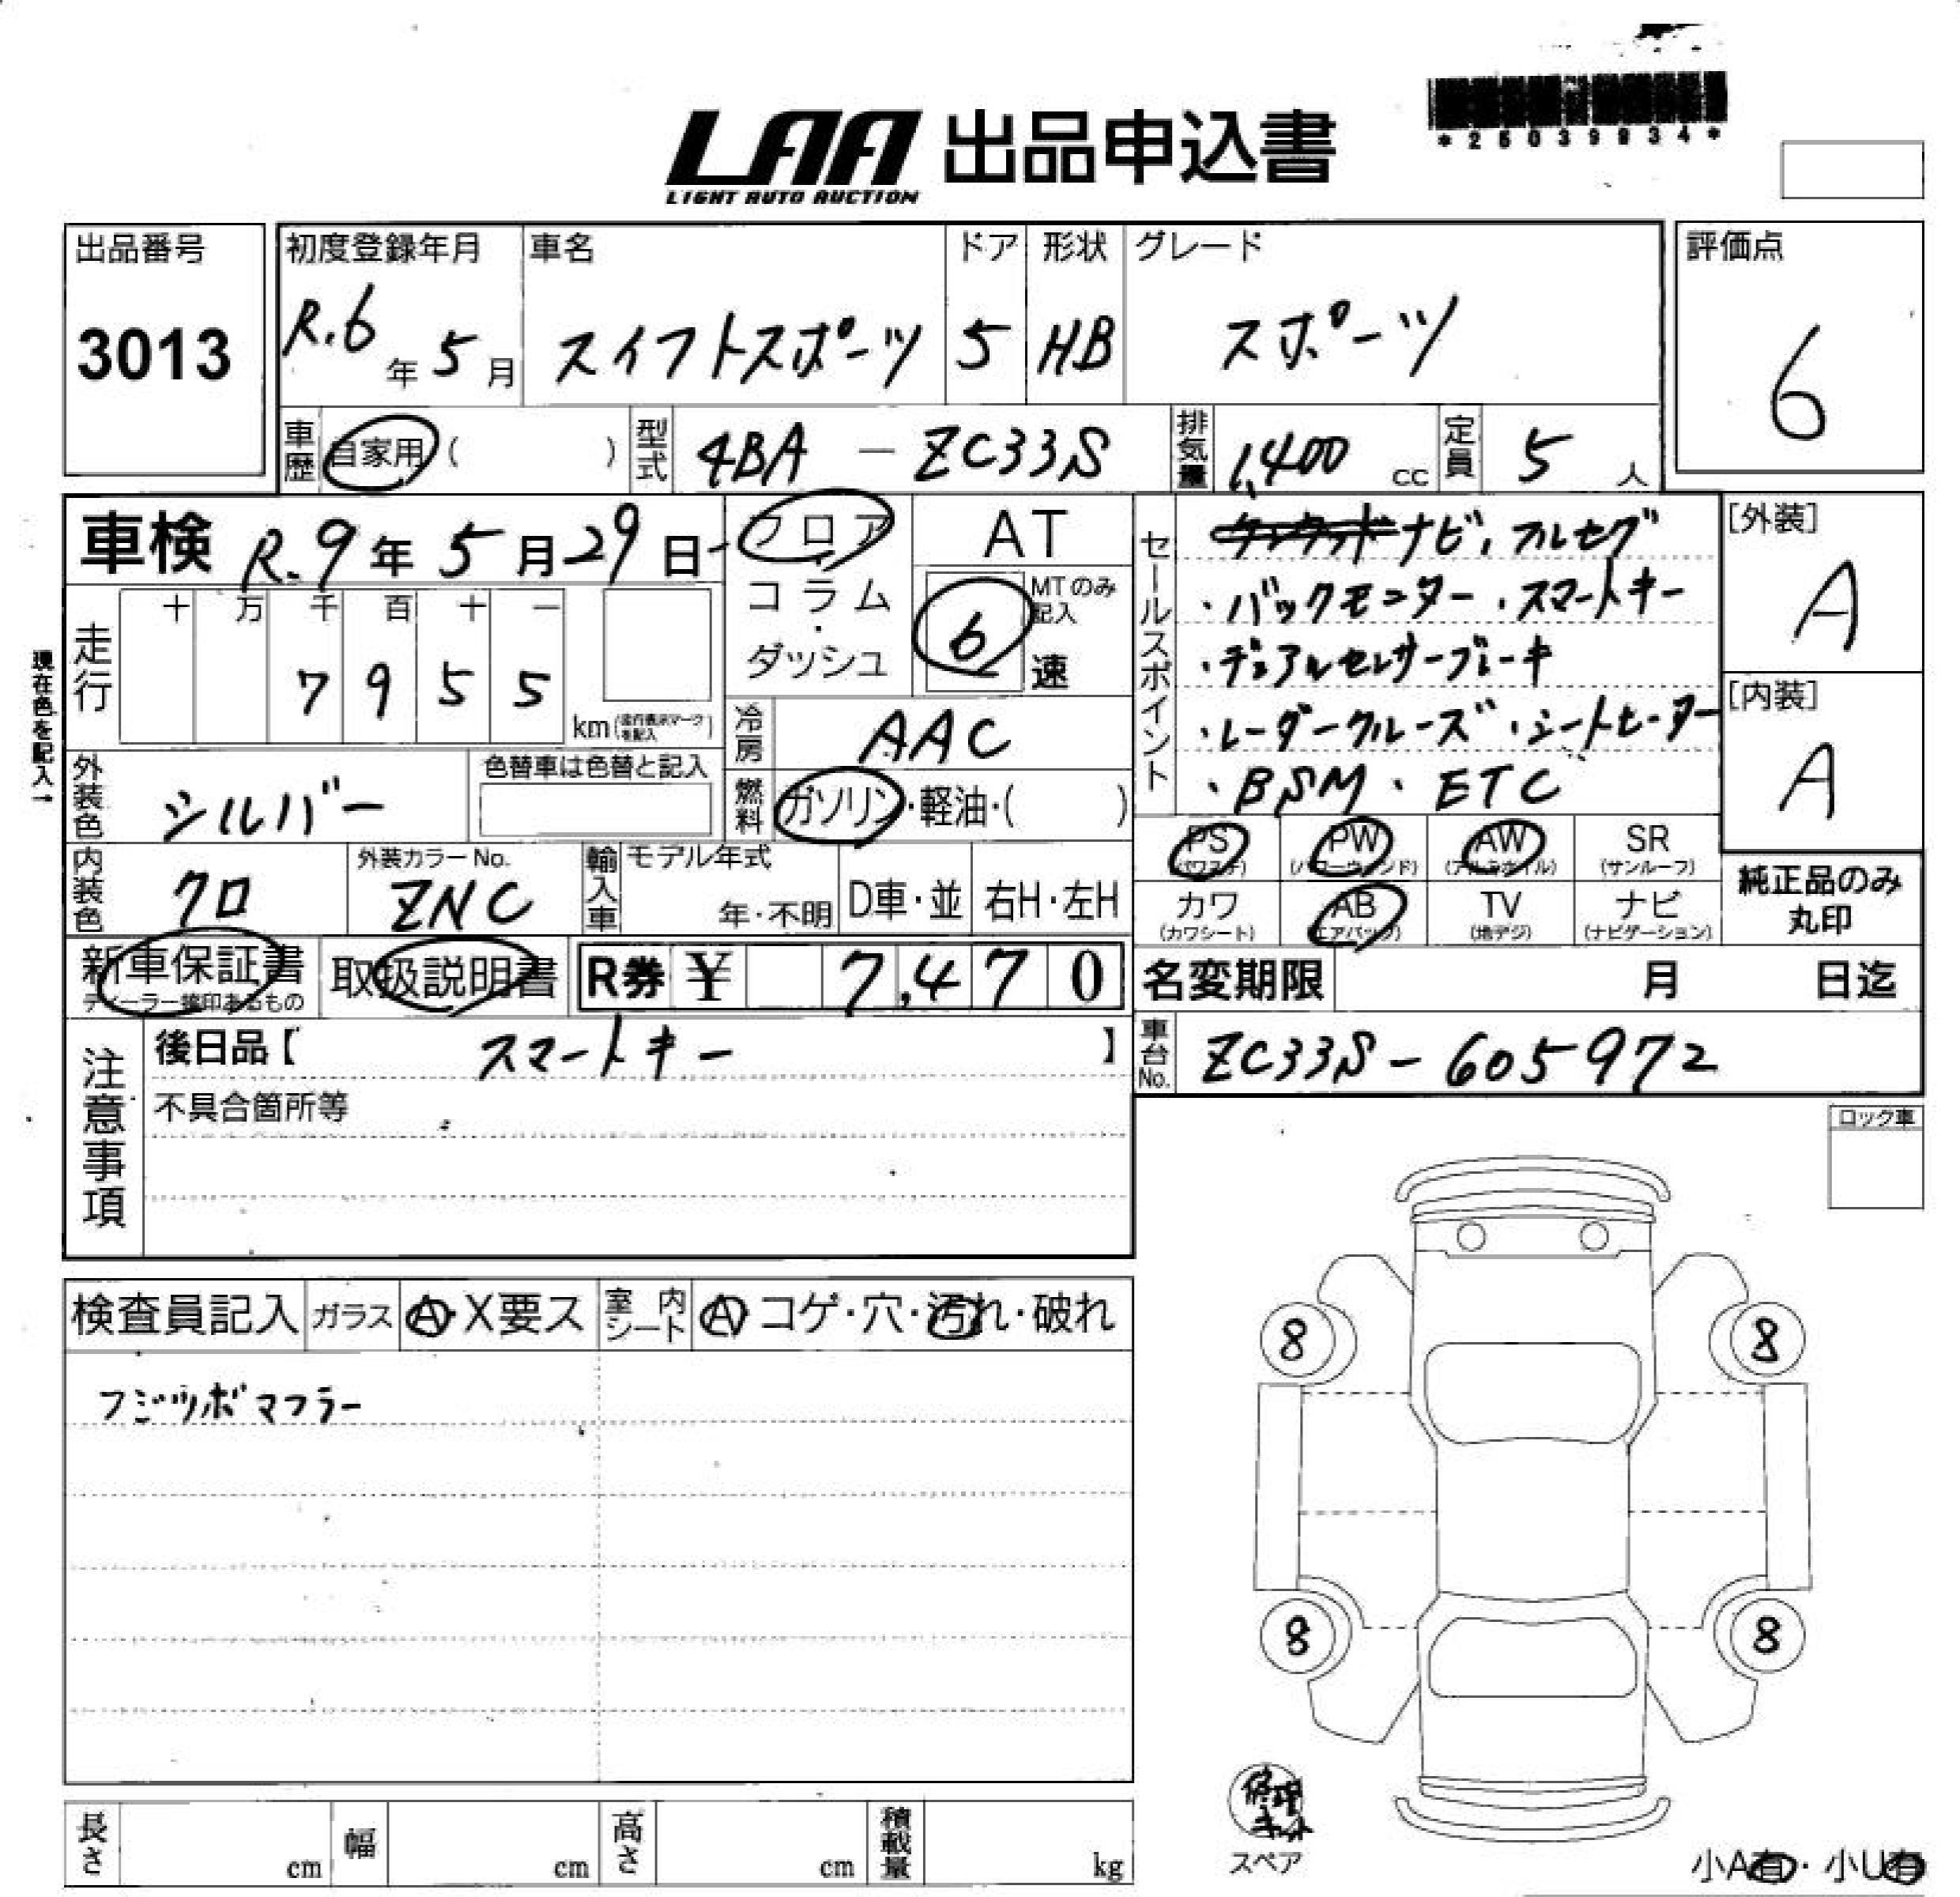 LAA 出品申込書
LIGHT AUTO AUCTION
出品番号
3013
初度登録年月
R.6年5月
車名
スイフトスポーツ
ドア
5
形状
HB
グレード
スポーツ
評価点
6
車歴 自家用( )
型式 4BA - ZC33S
排気量 1,400 cc
定員 5 人
車検 R.9年5月29日
フロア・コラム・ダッシュ
AT
6 速 MTのみ記入
現在色を記入→
走行 十 万 千 百 十 一
7 9 5 5
km(走行表示マークを記入)
冷房 AAC
燃料 ガソリン・軽油・( )
外装色 シルバー
色替車は色替と記入
内装色 クロ
外装カラーNo.
ZNC
輸入車 モデル年式
年・不明
D車・並
右H・左H
セールスポイント
ナビ、フルセグ
・バックモニター・スマートキー
・デュアルセンサーブレーキ
・レーダークルーズ・シートヒーター
・BSM・ETC
[外装]
A
[内装]
A
PS (パワステ)
PW (パワーウィンド)
AW (アルミホイル)
SR (サンルーフ)
カワ (カワシート)
AB (エアバッグ)
TV (地デジ)
ナビ (ナビゲーション)
純正品のみ
丸印
新車保証書
ディーラー捺印あるもの
取扱説明書
R券 ¥ 7,470
名変期限 月 日迄
車台No. ZC33S-605972
注意事項
後日品【 スマートキー 】
不具合箇所等
ロック車
検査員記入
ガラス A・X要ス
室内シート A・コゲ・穴・汚れ・破れ
フジツボマフラー
8
8
8
8
修理キット
スペア
長さ cm
幅 cm
高さ cm
積載量 kg
小A有・小U有